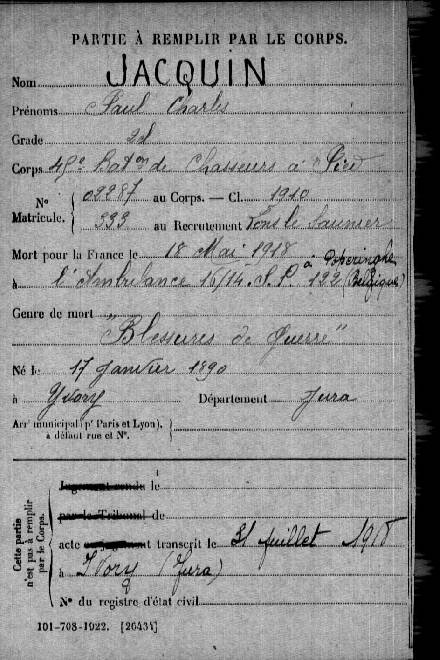 PARTIE À REMPLIR PAR LE CORPS.
Nom JACQUIN
Prénoms Paul Charles
Grade 2d
Corps 45e Baton de Chasseurs à Pied
N° Matricule. { 02287 au Corps. — Cl. 1910
333 au Recrutement Lons le Saunier
Mort pour la France le 18 Mai 1918
à l'Ambulance 16/14. S.P. 122 à Poperinghe (Belgique)
Genre de mort
"Blessures de Guerre"
Né le 17 Janvier 1890
à Yvory Département Jura
Arrt municipal (pr Paris et Lyon), à défaut rue et N°. }
Cette partie n'est pas à remplir par le Corps.
Jugement rendu le
par le Tribunal de
acte transcrit le 31 Juillet 1918
à Ivory (Jura)
N° du registre d'état civil
101-708-1922. [26434]